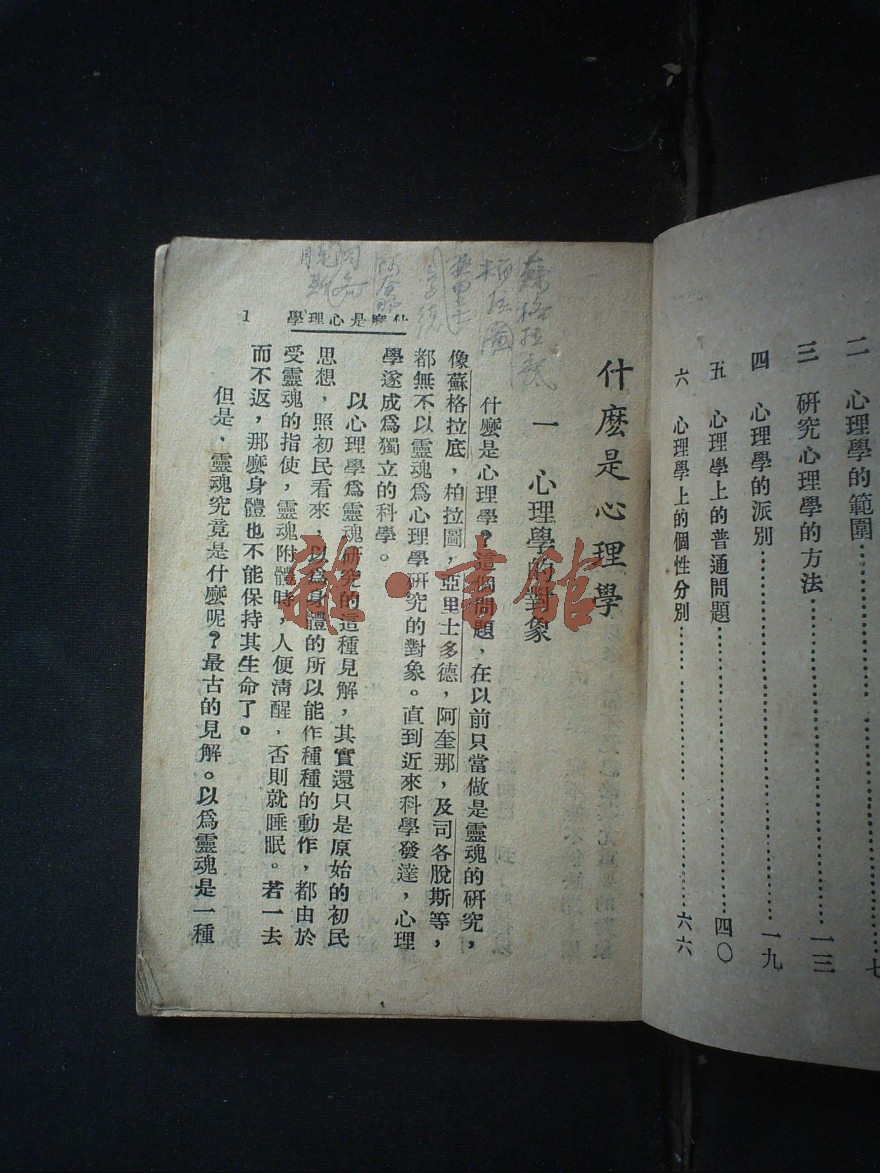 二　心理學的範圍……七
三　研究心理學的方法……一三
四　心理學的派別……一九
五　心理學上的普通問題……四〇
六　心理學上的個性分別……六六
蘇格拉底
柏拉圖
什麽是心理學　1
什麽是心理學
一　心理學的對象
什麽是心理學？這個問題，在以前只當做是靈魂的研究，
像蘇格拉底，柏拉圖，亞里士多德，阿奎那，及司各脫斯等，
都無不以靈魂爲心理學研究的對象。直到近來科學發達，心理
學遂成爲獨立的科學。
以心理學爲靈魂研究的這種見解，其實還只是原始的初民
思想，照初民看來，以爲身體的所以能作種種的動作，都由於
受靈魂的指使，靈魂附體時，人便清醒，否則就睡眠。若一去
而不返，那麽身體也不能保持其生命了。
但是，靈魂究竟是什麽呢？最古的見解。以爲靈魂是一種
雜·書館